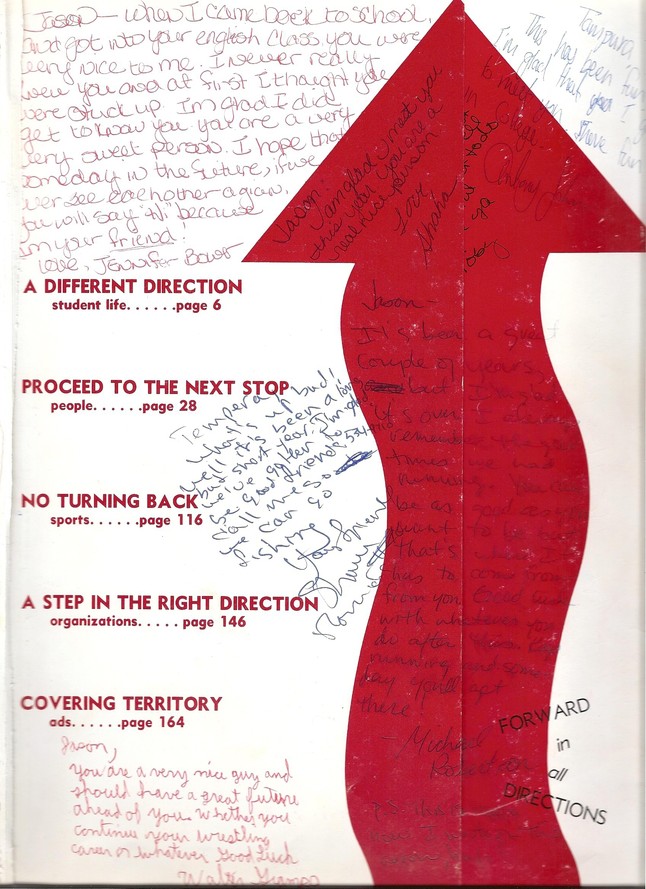 Jason - when I came back to school,
and got into your english class, you were
very nice to me. I never really
knew you and at first I thought you
were stuck up. I'm glad I did
get to know you. you are a very
very sweet person. I hope that
someday in the future, if we
ever see each other again,
you will say "hi" because
I'm your friend!
Love, Jennifer
This has been
I'm glad that I
to meet you. Have fun
Jason!
I am glad I meet you
this year you are a
real nice person.
Love
A DIFFERENT DIRECTION
student life......page 6
PROCEED TO THE NEXT STOP
people......page 28
NO TURNING BACK
sports......page 116
A STEP IN THE RIGHT DIRECTION
organizations..... page 146
COVERING TERRITORY
ads......page 164
Tempera
what's up bud!
well it's been a long
but short year. I'm glad
we've gotten to
be good friends
call me so
we can go
fishing
Your friend
Jason -
It's been a great
couple of years,
but I'm glad
it's over. I always
remember the good
times we had
running. You can
be as good as you
want to be but
that's where it
has to come from
from you. Good luck
with whatever you
do after
running and some
day you'll get
there.
Michael
Jason,
You are a very nice guy and
should have a great future
ahead of you. Whether you
continue your wrestling
career or whatever Good Luck
Walter
FORWARD
in
all
DIRECTIONS